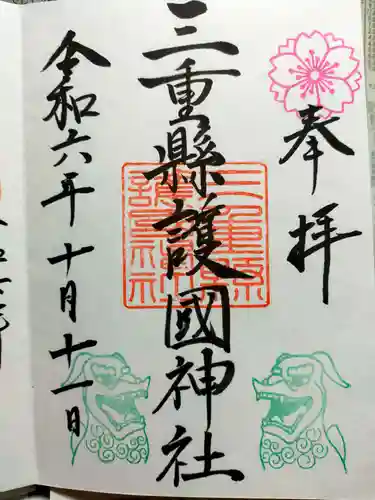 奉拝
三重縣護國神社
令和六年十月十一日
三重縣護國神社